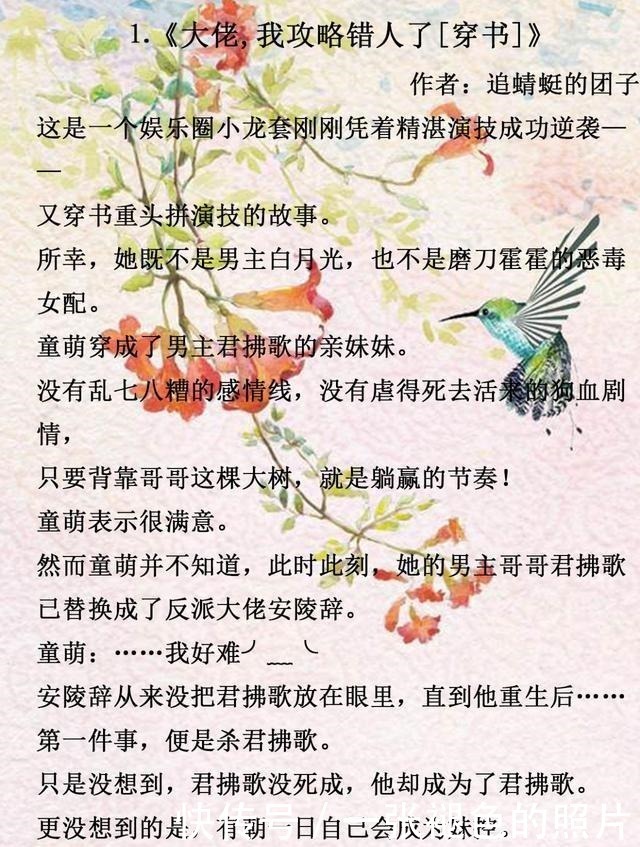 1.《大佬,我攻略错人了[穿书]》
作者：追蜻蜓的团子
这是一个娱乐圈小龙套刚刚凭着精湛演技成功逆袭—
—
又穿书重头拼演技的故事。
所幸，她既不是男主白月光，也不是磨刀霍霍的恶毒
女配。
童萌穿成了男主君拂歌的亲妹妹。
没有乱七八糟的感情线，没有虐得死去活来的狗血剧
情，
只要背靠哥哥这棵大树，就是躺赢的节奏！
童萌表示很满意。
然而童萌并不知道，此时此刻，她的男主哥哥君拂歌
已替换成了反派大佬安陵辞。
童萌：……我好难╯﹏╰
安陵辞从来没把君拂歌放在眼里，直到他重生后……
第一件事，便是杀君拂歌。
只是没想到，君拂歌没死成，他却成为了君拂歌。
更没想到的是，有朝一日自己会成为妹控。
快传号 / 一张褪色的照片